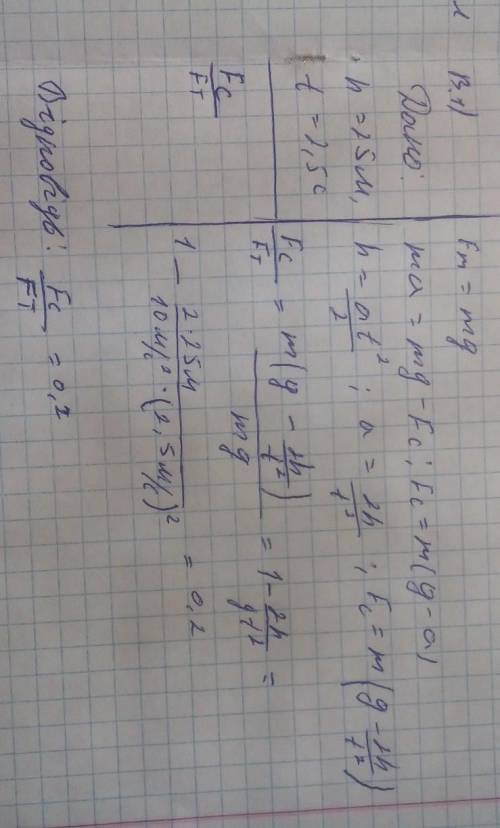 Дано:
h = 25 м,
t = 2,5 с
Fc/Fт
Fт = mg
ma = mg - Fc ; Fc = m(g - a)
h = at²/2 ; a = 2h/t² ; Fc = m(g - 2h/t²)
Fc/Fт = m(g - 2h/t²)/mg = 1 - 2h/gt² =
1 - 2·25м/10 м/с²·(2,5м/с)² = 0,2
Відповідь: Fc/Fт = 0,2